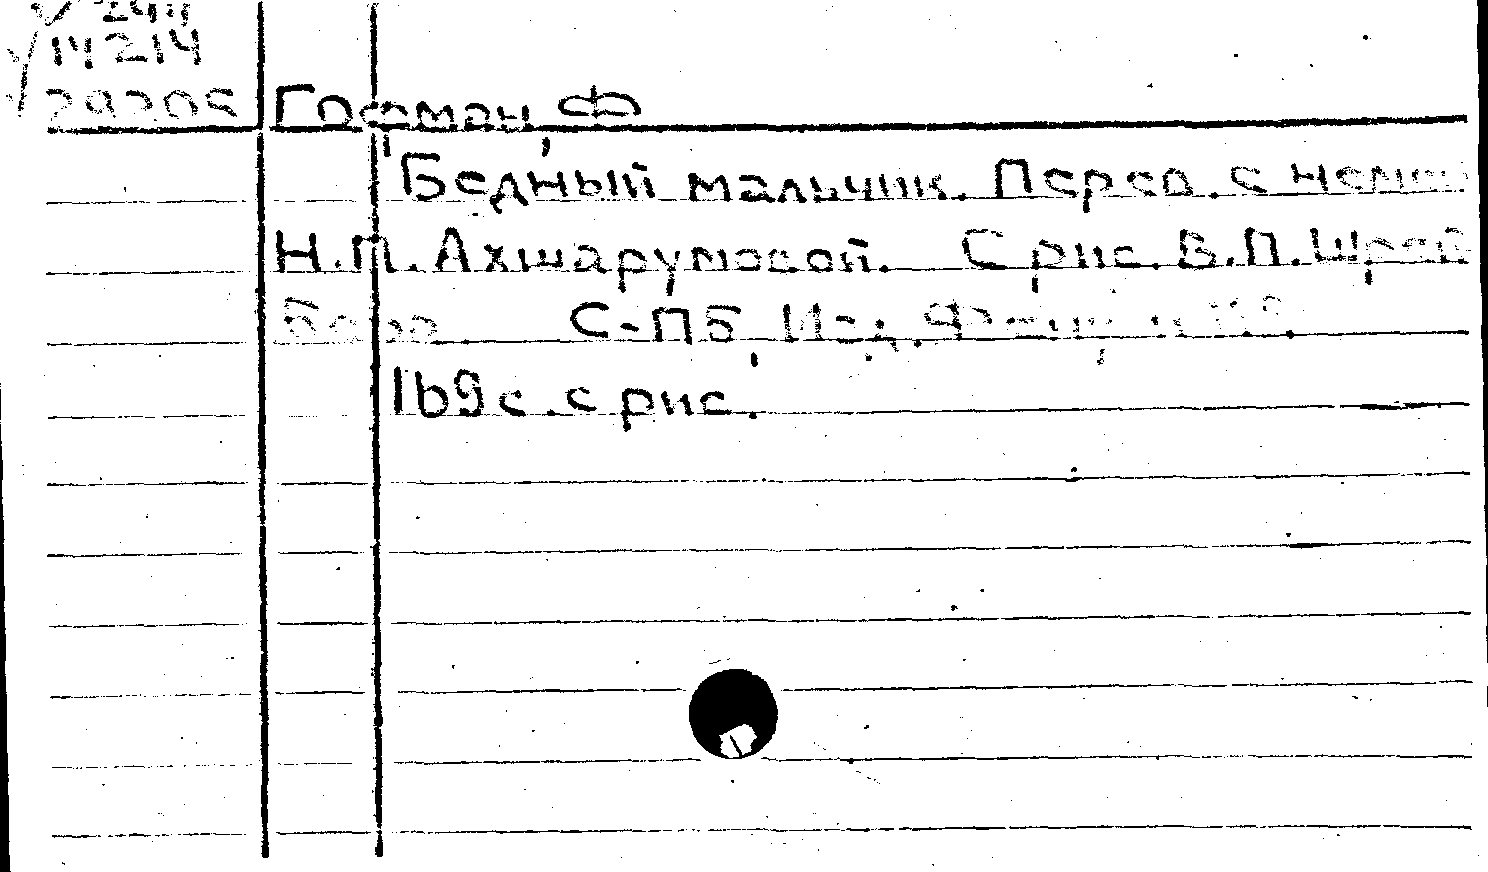 14214
29205 Гофман, Ф
Бедный мальчик. Перев. с немец
Н.П. Ахшарумовой. С рис. В.П. Шрей
бера С-ПБ, Изд.
169 с. с рис.